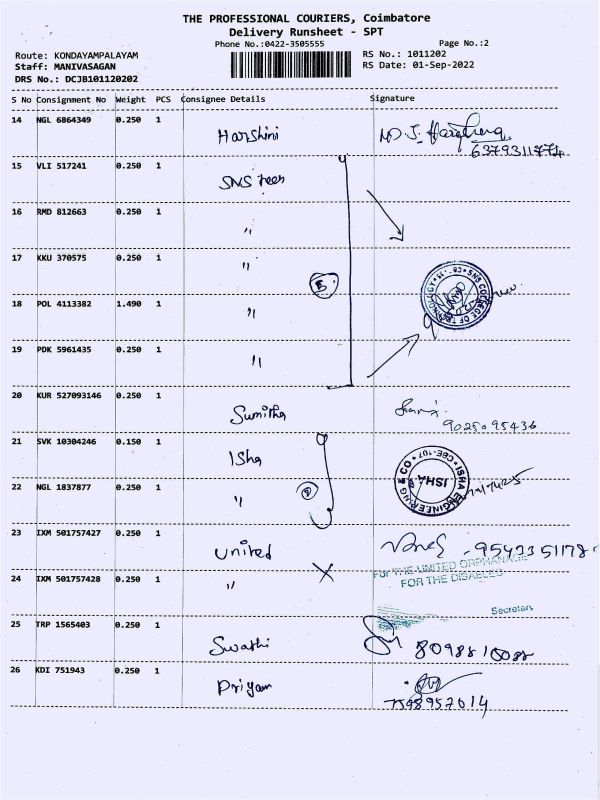 THE PROFESSIONAL COURIERS, Coimbatore
Delivery Runsheet - SPT
Phone No.:0422-3505555
Page No.:2
Route: KONDAYAMPALAYAM
RS No.: 1011202
Staff: MANIVASAGAN
RS Date: 01-Sep-2022
DRS No.: DCJB101120202
S No Consignment No Weight PCS Consignee Details Signature
14 NGL 6864349 0.250 1
Harshini
6379311774
15 VLI 517241 0.250 1
SNS
16 RMD 812663 0.250 1
"
17 KKU 370575 0.250 1
"
5
SNS COLLEGE OF TECHNOLOGY
18 POL 4113382 1.490 1
"
19 PDK 5961435 0.250 1
"
20 KUR 527093146 0.250 1
Sumitha
9025095436
21 SVK 10304246 0.150 1
Isha
ISHA ENGINEERING & CO * CBE-107 *
ISHA
22 NGL 1837877 0.250 1
"
23 IXM 501757427 0.250 1
United
9542351178
For THE UNITED ORPHANAGE
FOR THE DISABLED
24 IXM 501757428 0.250 1
"
X
Secretary
25 TRP 1565403 0.250 1
Swathi
26 KDI 751943 0.250 1
Priyam
7598957614